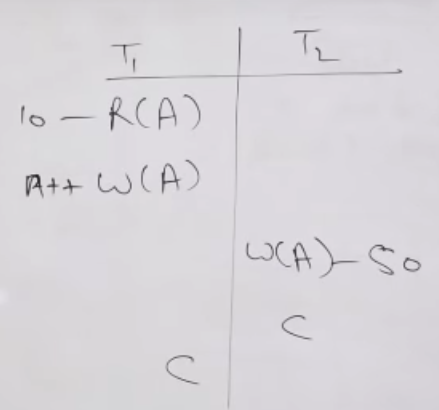 T1 T2
10 — R(A)
A++ W(A)
W(A) — 50
C
C